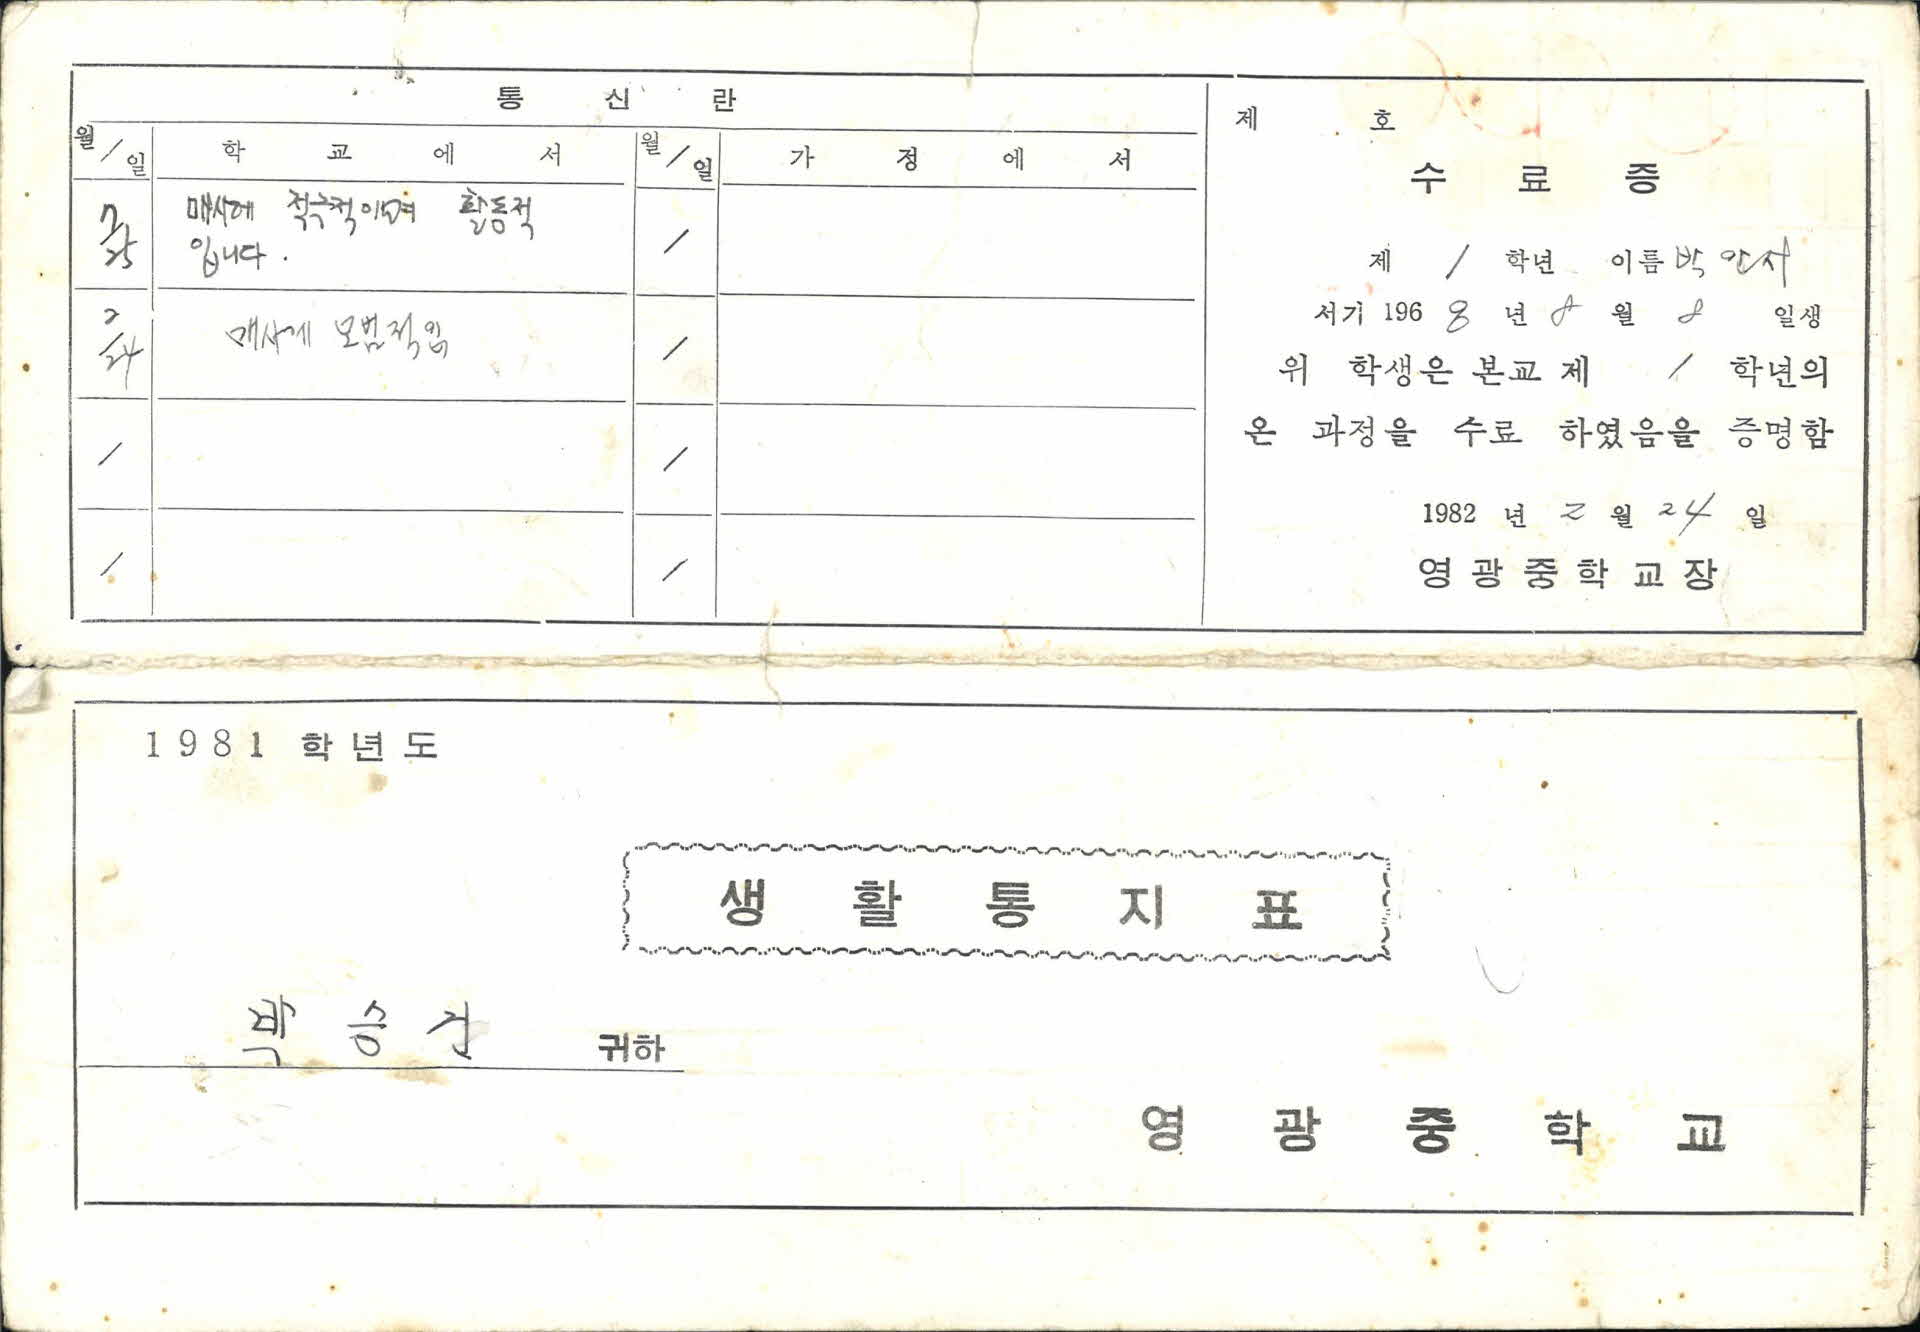 통 신 란
월/일 학 교 에 서 월/일 가 정 에 서
7/25 매사에 적극적이며 활동적 /
입니다.
2/24 매사에 모범적임 /
/ /
/ /
제 호
수 료 증
제 1 학년 이름 박
서기 1968 년 8 월 8 일생
위 학생은 본교 제 1 학년의
온 과정을 수료 하였음을 증명함
1982 년 2 월 24 일
영광중학교장
1981 학년도
생 활 통 지 표
박 승 건 귀하
영 광 중 학 교